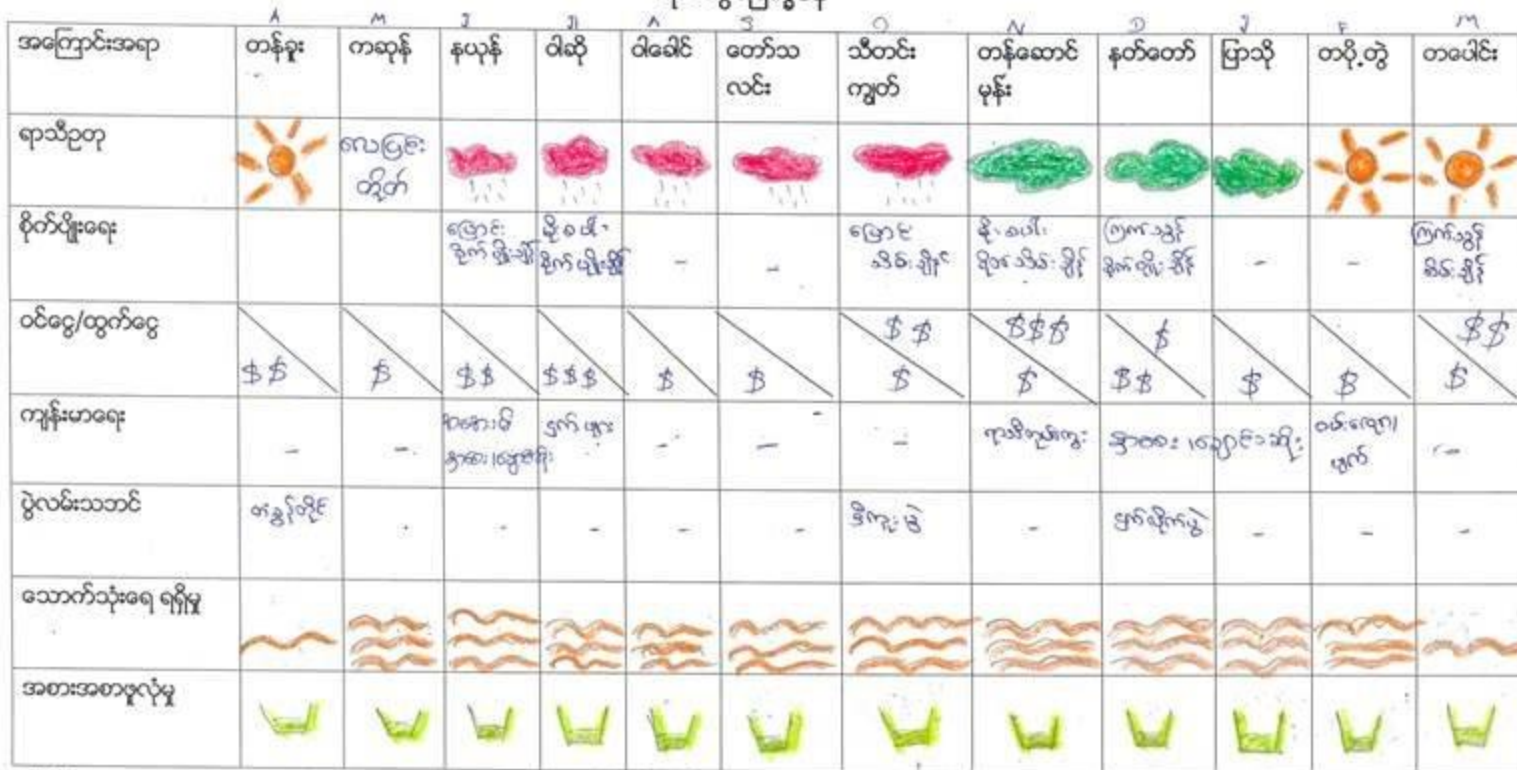 A M J J A S O N D J F M
အကြောင်းအရာ တန်ခူး ကဆုန် နယုန် ဝါဆို ဝါခေါင် တော်သလင်း သီတင်းကျွတ် တန်ဆောင်မုန်း နတ်တော် ပြာသို တပို့တွဲ တပေါင်း
ရာသီဥတု လေပြင်းတိုက်
စိုက်ပျိုးရေး ပြောင်းစိုက်ပျိုးချိန် မိုးစပါးစိုက်ပျိုးချိန် - - ပြောင်းသိမ်းချိန် မိုးစပါးရိတ်သိမ်းချိန် ကြက်သွန်စိုက်ပျိုးချိန် - - ကြက်သွန်သိမ်းချိန်
ဝင်ငွေ/ထွက်ငွေ
$$ $$$ $ $$
$$ $ $$ $$$ $ $ $ $ $$ $ $ $
ကျန်းမာရေး - - ငှက်ဖျား - - - ရာသီတုပ်ကွေး နှာစေး၊ ချောင်းဆိုး ဝမ်းလျှော၊ဖျက် -
ပွဲလမ်းသဘင် - - - - - - - - -
သောက်သုံးရေ ရရှိမှု
အစားအစာဖူလုံမှု